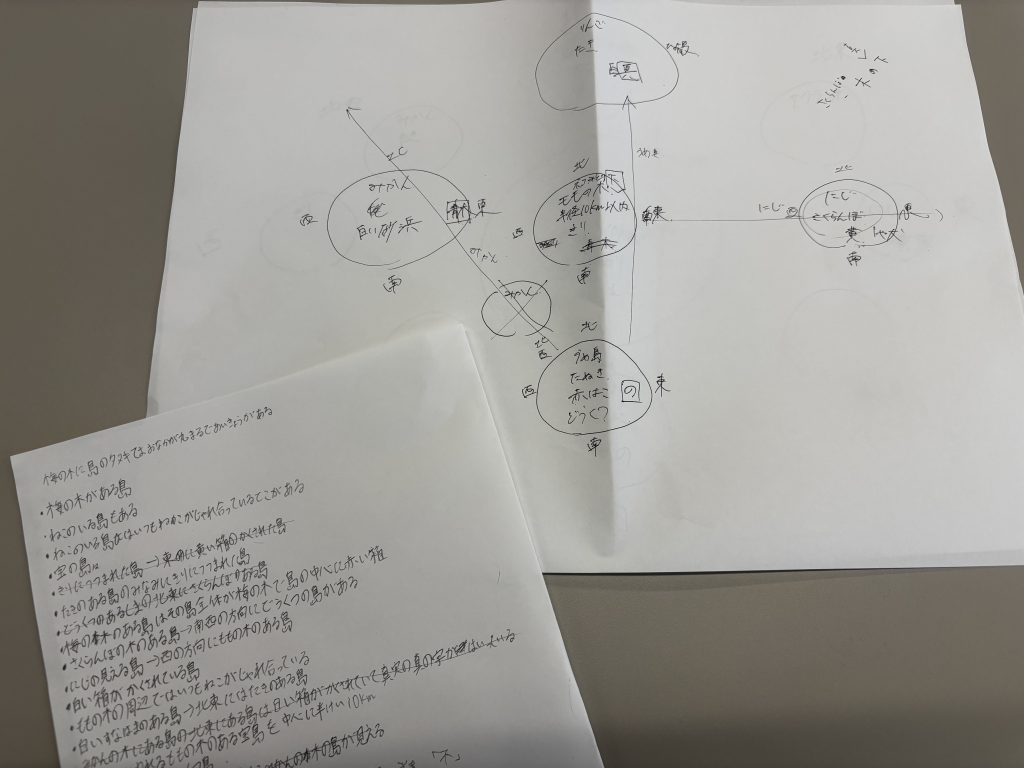 りんご
たき
真
北
北
みかん
竜
白い砂浜
西
東
南
みかん
みかん
北
ももの木
半径10km以内
きり
西
東
南
うめ島
たぬき
赤はこ
どうくつ
の
北
西
東
南
にじ
西
にじ
さくらんぼ
黄
南
梅の木に島のタヌキではおなかが丸まるであいきょうがある
・梅の木がある島
・ねこのいる島もある
・ねこのいる島ではいつもねこがじゃれ合っているてこがある
・宝の島は
・きりにつつまれた島→東に黄い箱のかくされた島
・たきのある島のみなみにきりにつつまれた島
・どうくつのあるしまの北東にさくらんぼがある島
・梅の木のある島はその島全体が梅の木で島の中心に赤い箱
・さくらんぼの木のある島→南西の方向にどうくつの島がある
・にじの見える島→西の方向にももの木のある島
・白い箱がかくされている島
・ももの木の周辺ではいつもねこがじゃれ合っている
・白いすなはまのある島→北東にはたきのある島
・みかんの木にある島の北東にある島は白い箱がかくされていて真実の真の字がはいっている
ももの木のある宝島を中心に半けい10km
の島が見える
「不」